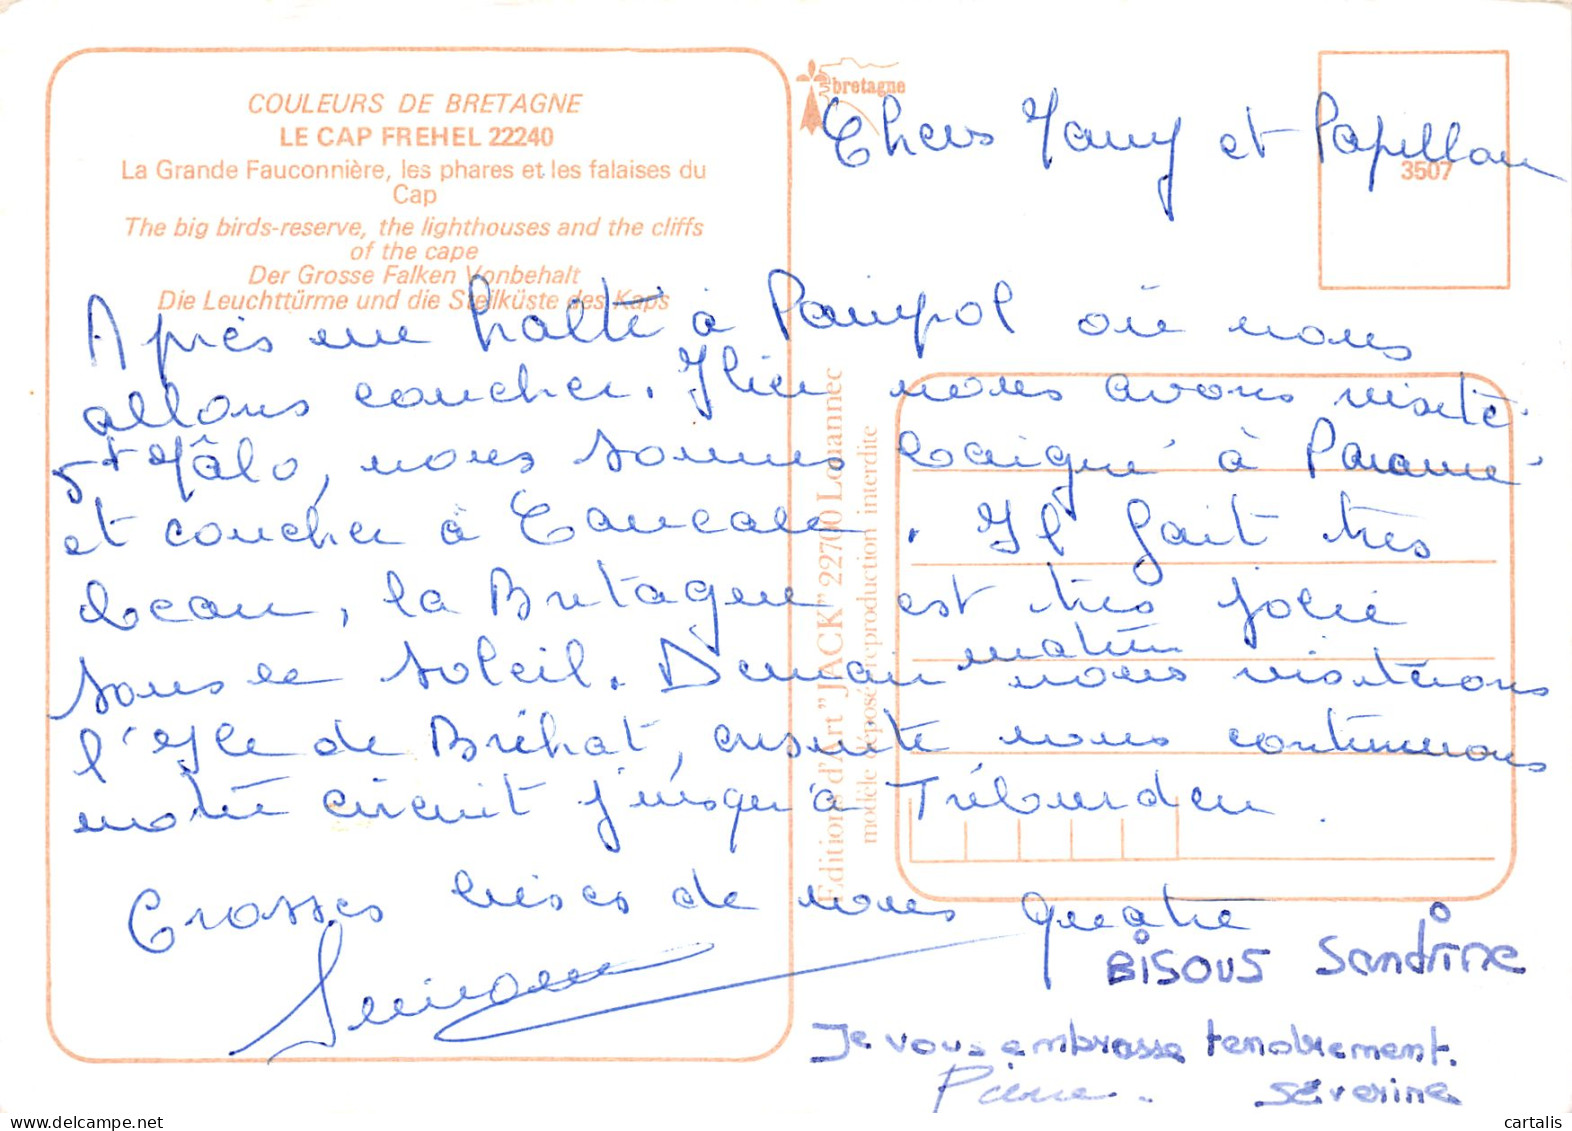 COULEURS DE BRETAGNE
LE CAP FREHEL 22240
La Grande Fauconnière, les phares et les falaises du
Cap
The big birds-reserve, the lighthouses and the cliffs
of the cape
Der Grosse Falken Vonbehalt
Die Leuchttürme und die Steilküste des Kaps
bretagne
3507
Editions d'Art "JACK" 22700 Louannec
modèle déposé reproduction interdite
Chers Many et Papillon
Après une halte à Paimpol où nous
allons coucher. Hier nous avons visité
St Mâlo, nous sommes baigné à Paramé
et coucher à Cancale. Il fait très
beau, la Bretagne est très jolie
sous le soleil. Demain matin nous visiterons
l'Ile de Bréhat, ensuite nous continuerons
notre circuit jusqu'à Trébeurden.
Grosses bises de nous quatre
Simone
BISOUS Sandrine
Je vous embrasse tendrement.
Pierre. Séverine
cartalis